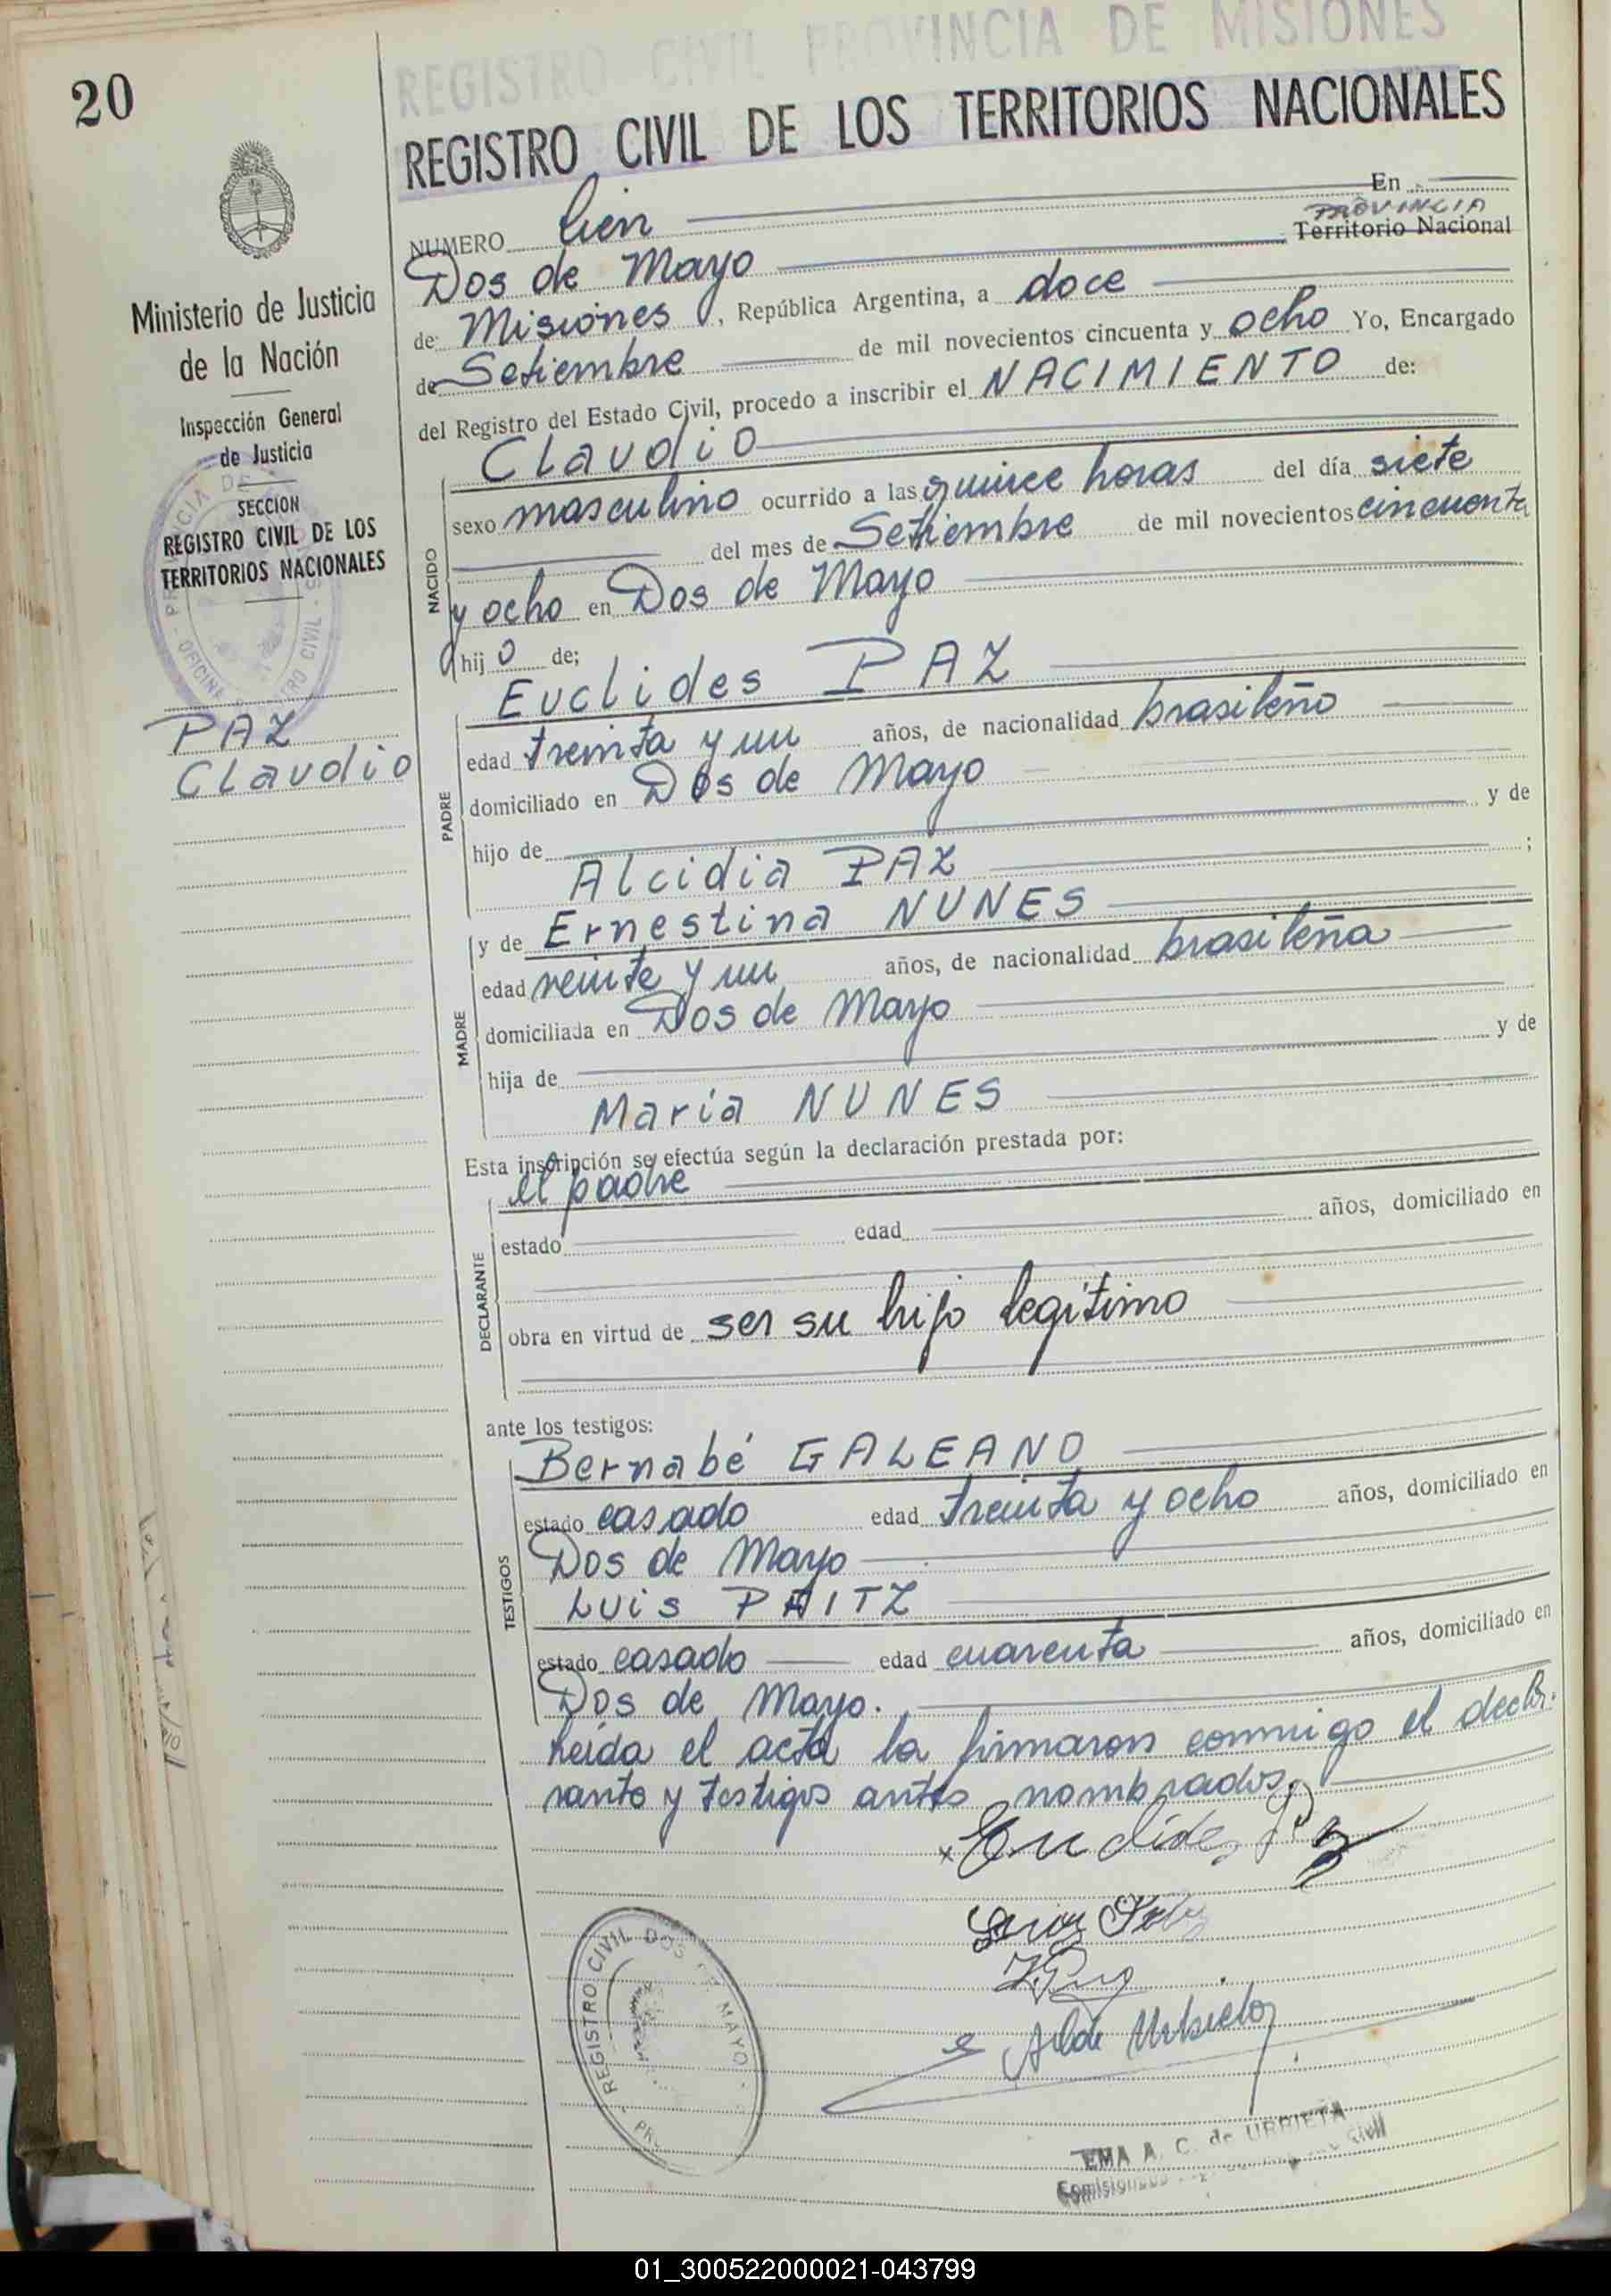 20
REGISTRO CIVIL PROVINCIA DE MISIONES
REGISTRO CIVIL DE LOS TERRITORIOS NACIONALES
Ministerio de Justicia
de la Nación
Inspección General
de Justicia
SECCION
REGISTRO CIVIL DE LOS
TERRITORIOS NACIONALES
PAZ
Claudio
NUMERO Cien En
PROVINCIA
Dos de Mayo Territorio Nacional
de Misiones, República Argentina, a doce
de Setiembre de mil novecientos cincuenta y ocho Yo, Encargado
del Registro del Estado Civil, procedo a inscribir el NACIMIENTO de:
NACIDO
Claudio
sexo masculino ocurrido a las quince horas del día siete
del mes de Setiembre de mil novecientos cincuenta
y ocho en Dos de Mayo
hijo de;
PADRE
Euclides PAZ
edad treinta y un años, de nacionalidad brasileño
domiciliado en Dos de Mayo
hijo de y de
Alcidia PAZ ;
MADRE
y de Ernestina NUNES
edad veinte y un años, de nacionalidad brasileña
domiciliada en Dos de Mayo
hija de y de
Maria NUNES
Esta inscripción se efectúa según la declaración prestada por:
DECLARANTE
el padre
estado edad años, domiciliado en
obra en virtud de ser su hijo legítimo
ante los testigos:
TESTIGOS
Bernabé GALEANO
estado casado edad treinta y ocho años, domiciliado en
Dos de Mayo
Luis PAITZ
estado casado edad cuarenta años, domiciliado en
Dos de Mayo.
Leída el acta la firmaron conmigo el decla-
rante y testigos antes nombrados.
Euclides Paz
REGISTRO CIVIL DOS DE MAYO
EMA A. C. de URBIETA
01_300522000021-043799